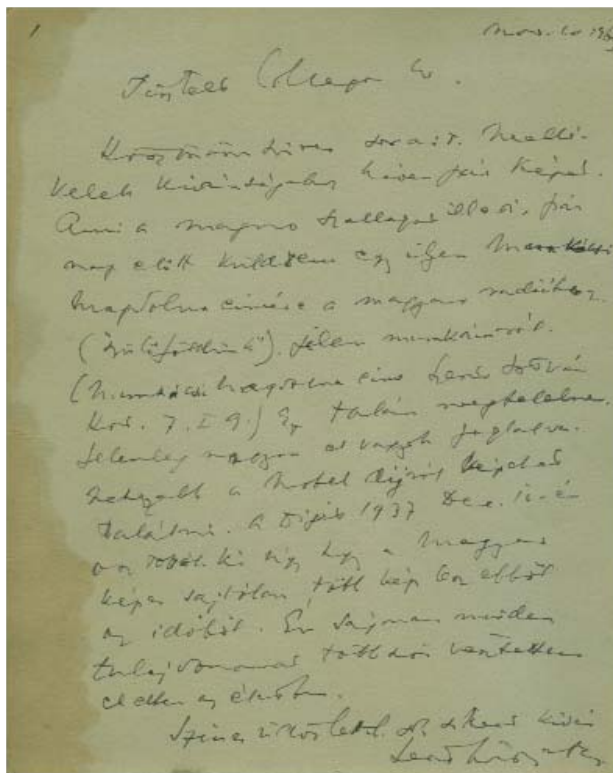 1
Nov. 20 196
Tisztelt Collega Úr.
Köszönöm szíves sorait. Mellé-
kelek kívánságához híven pár képet.
Ami a magno szallagot illeti, pár
nap előtt küldtem egy ilyen
Magdolna címére a magyar rádióhoz
("Szülőföldünk"). jelen munkáimról.
(Munkácsi Magdolna címe
7. I 9.) Ez talán megfelelne.
Jelenleg nagyon el vagyok foglalva.
Nehezebb a Nobel díjról képeket
találni. A Díjat 1937 Dec. 10-én
osztották ki úgy hogy a magyar
képes sajtóban több kép lesz ebből
az időből. Én sajnos minden
tulajdonomat többször vesztettem
el ebben az életben.
Szíves üdvözlettel és sikert kíván